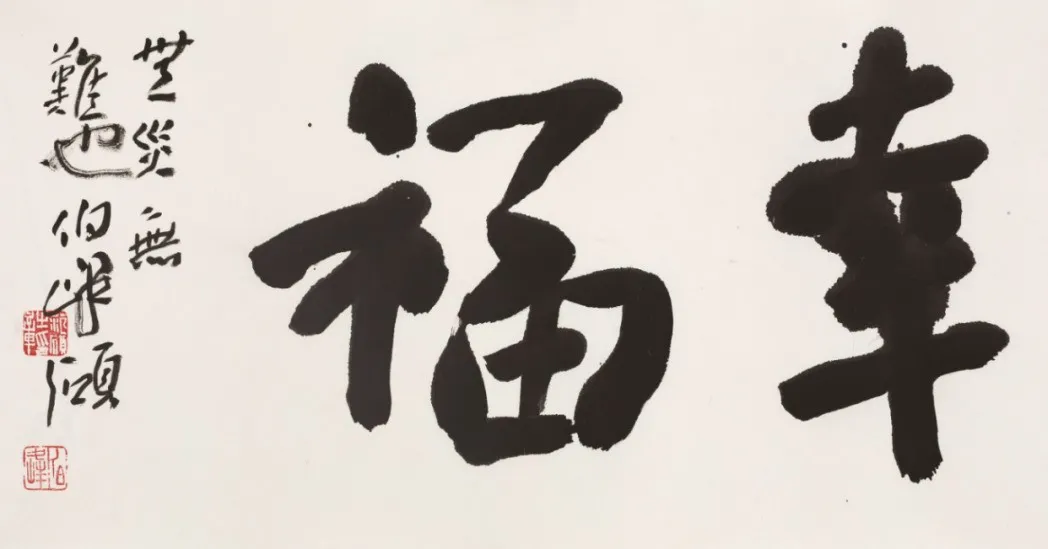 幸福
無災無
難也伯碩